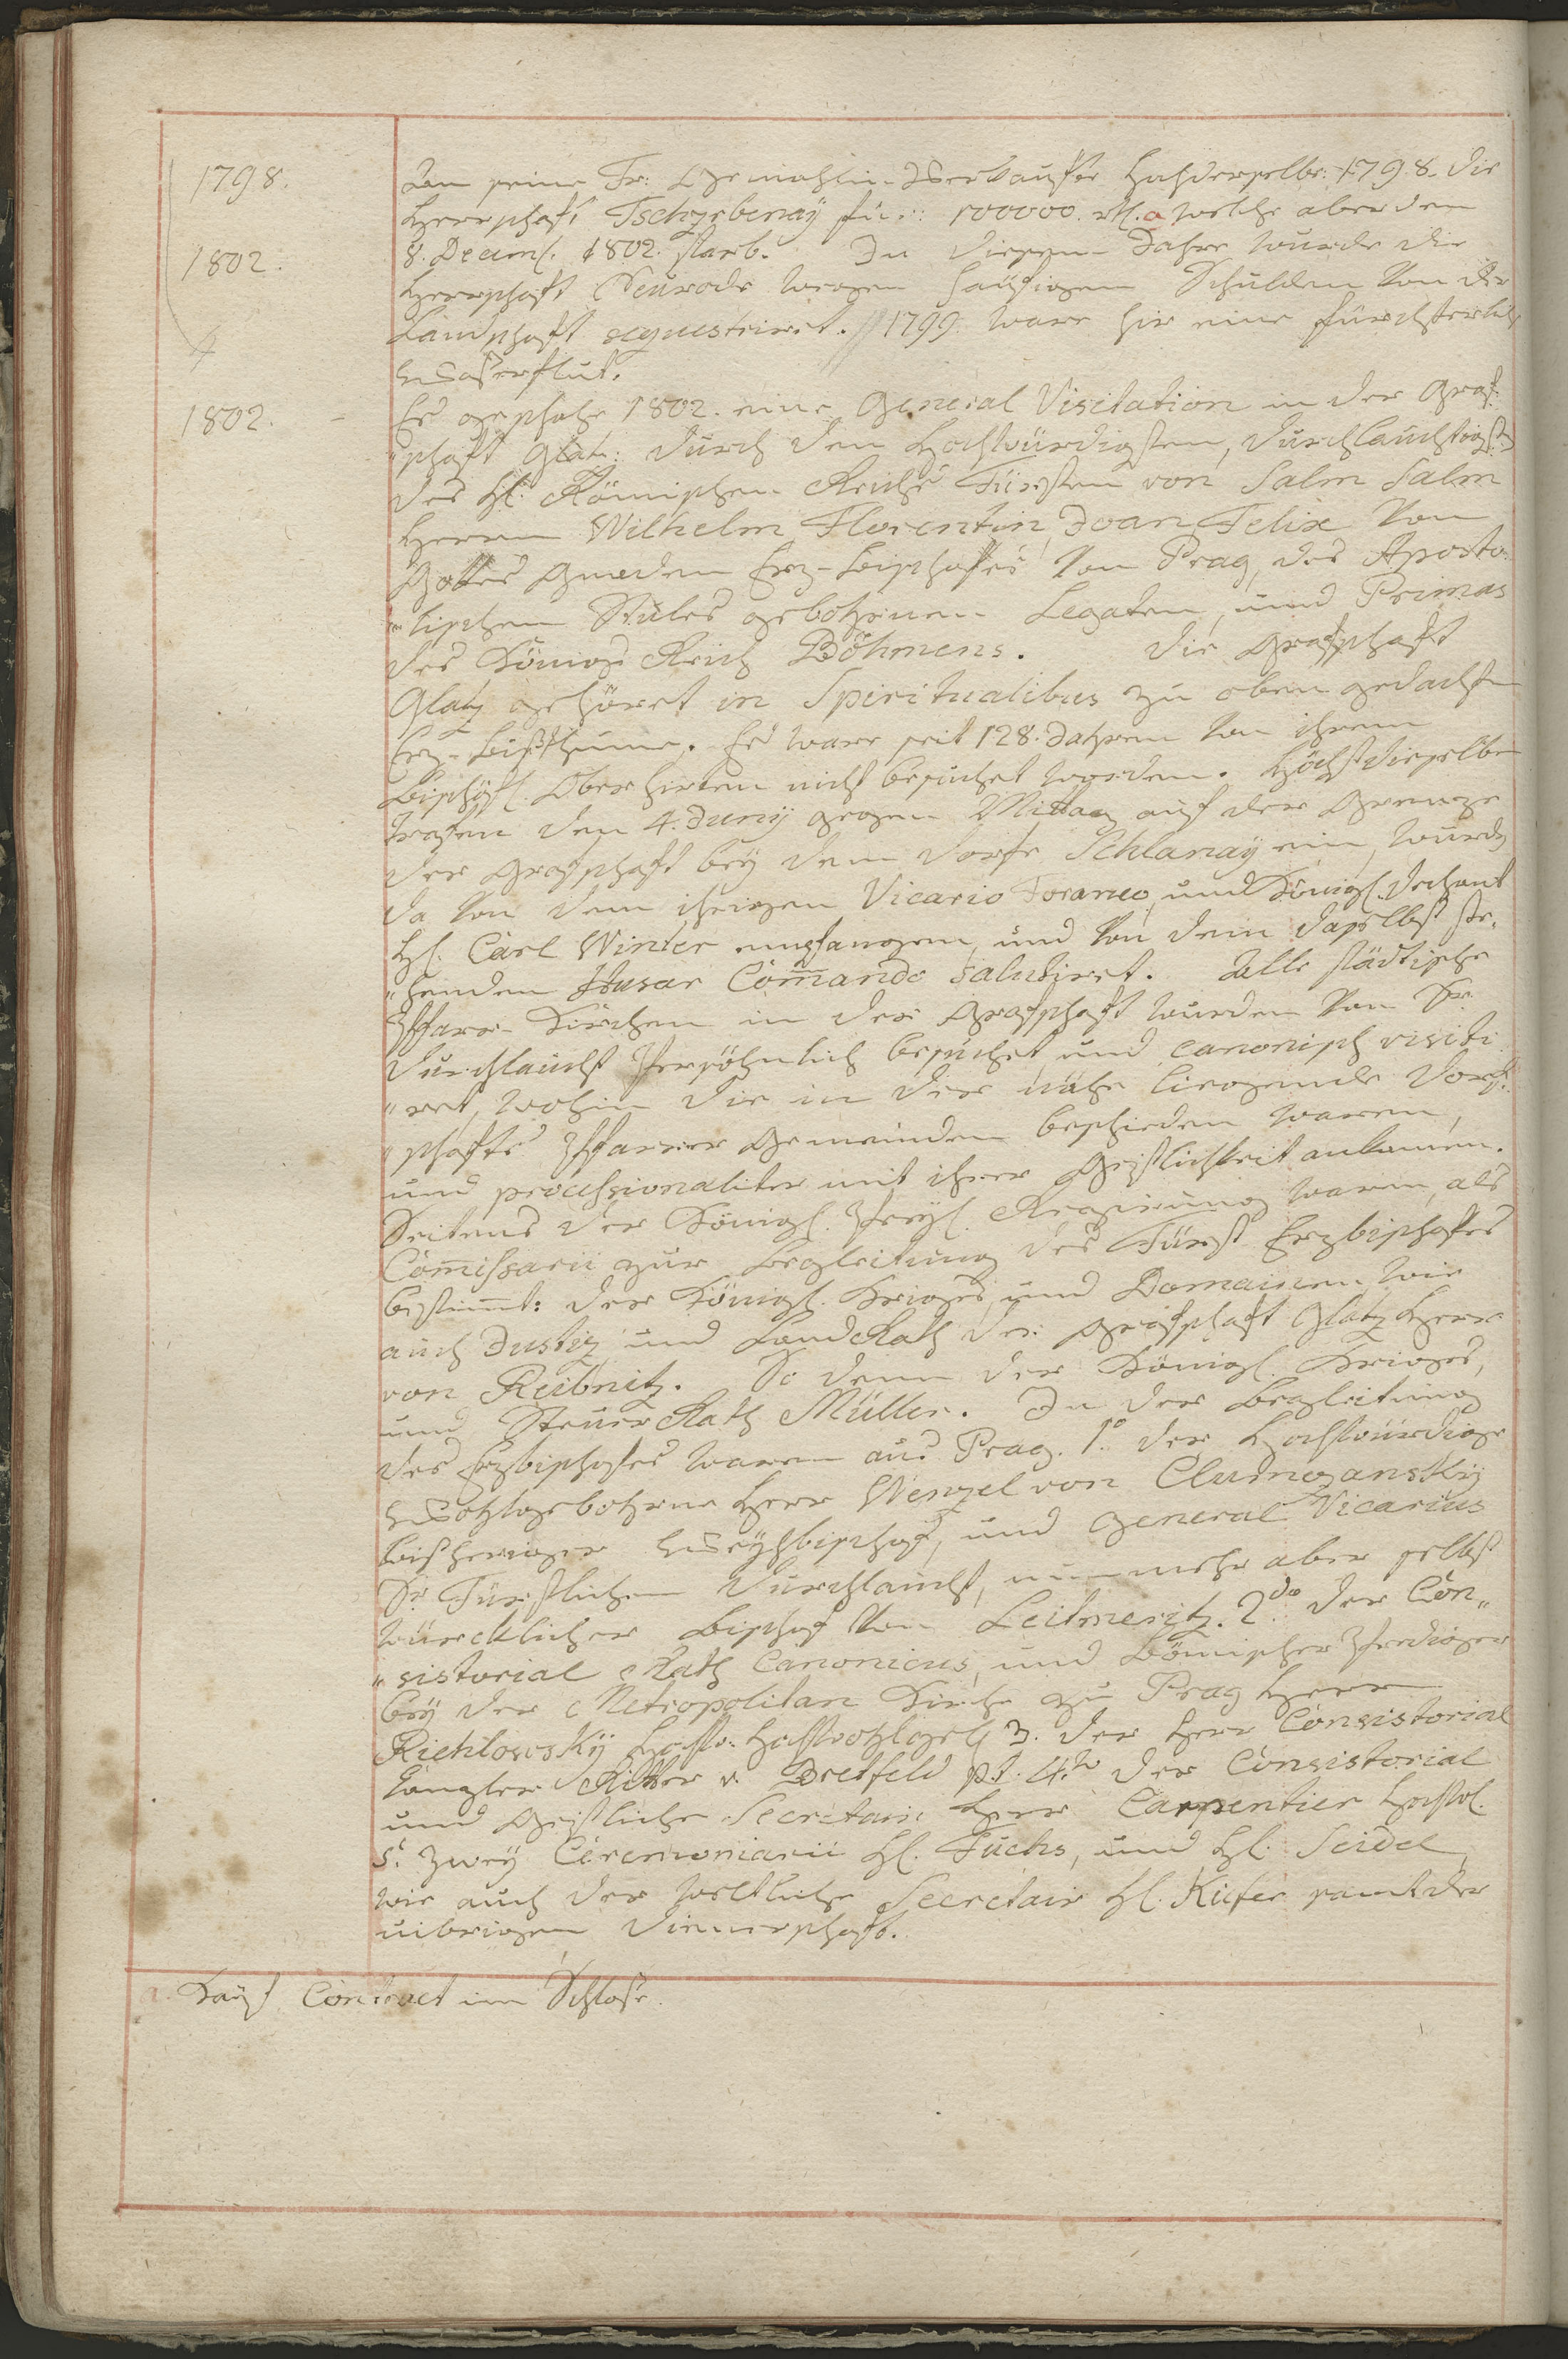 1798.
An seine Fr: Gemahlin Verkaufte Hochderselbe: 1798. die
Herrschaft Tscherbenaÿ für: 100000. rtl. a welche aber den
1802.
8. Decemb. 1802. starb. In diesem Jahre wurde die
Herrschaft Neurode wegen häufigen Schulden von der
Landschaft sequestriret. // 1799. ware hir eine fürchterliche
Waßerflut.
1802. -
Es geschahe 1802. eine General Visitation in der Graf-
"schaft Glatz: durch den Hochwürdigsten, durchlauchtigsten
des hl: Römischen Reichs Fürsten von Salm Salm
Herrn Wilhelm Florentin, Joan, Felix von
Gottes Gnaden Erz-Bischofes von Prag, des Aposto-
"lischen Stules gebohrnen Legaten, und Primas
des König Reich Böhmens. Die Grafschaft
Glatz gehöret in Spiritualibus zu oben gedachten
Erz-Bißthume. Es ware seit 128. Jahren von ihrem
Bischöfl. Oberhirten nicht besuchet worden. Höchstdieselben
trafen den 4. Juny gegen Mittag auf der Grenze
der Grafschaft beÿ dem Dorfe Schlanaÿ ein, wurden
da von dem ihrigen Vicario Foraneo, und Königl. Dechant
Hl. Carl Winter empfangen, und von dem daselbst ste-
"henden Husar Com̄ando salutiret. Alle städtische
Pfarr-Kirchen in der Grafschaft wurden von Sr
Durchlaucht Persöhnlich besuchet und canonisch visiti-
"ret, wohin die in der nähe liegende Dorf-
"schafts Pfarrer Gemeinden beschieden waren,
und processionaliter mit ihrer Geistlichkeit ankamen.
Seitens der Königl. Preyß. Regirung waren, als
Com̄issarii zur Begleitung des Fürst Erzbischofes
bestim̄t: der Königl. Kriges, und Domainen wie
auch Justiz und Land Rath der Grafschaft Glatz Herr
von Reibnitz. So denn der Königl. Kriges,
und Steuer Rath Müller. In der Begleitung
des Erzbischofes waren aus Prag. 1o der Hochwürdige
Wohlgebohrne Herr Wenzel von Cludnozansky
bisheriger Weyhbischof, und General Vicarius
Sr Fürstlichen Durchlaucht, nunmehr aber selbst
würcklicher Bischof von Leitmeritz. 2do der Con"
"sistorial Rath Canonicus, und Böhmischer Prediger
beÿ der Metropolitan Kirche zu Prag Herr
Richlowskÿ Hochw: Hochwohlgeb 3. der Herr Consistorial
Canzler Ritter v. Bretfeld pt. 4to der Consistorial
und Geistliche Secretair Herr Carpentier Hochw.
5. Zweÿ Ceremoniarii Hl. Fuchs, und Hl. Seidel,
wie auch der weltliche Secretair Hl. Kiefer samt der
uibrigen Dienerschaft.
a. Kauf Contract im Schloße.